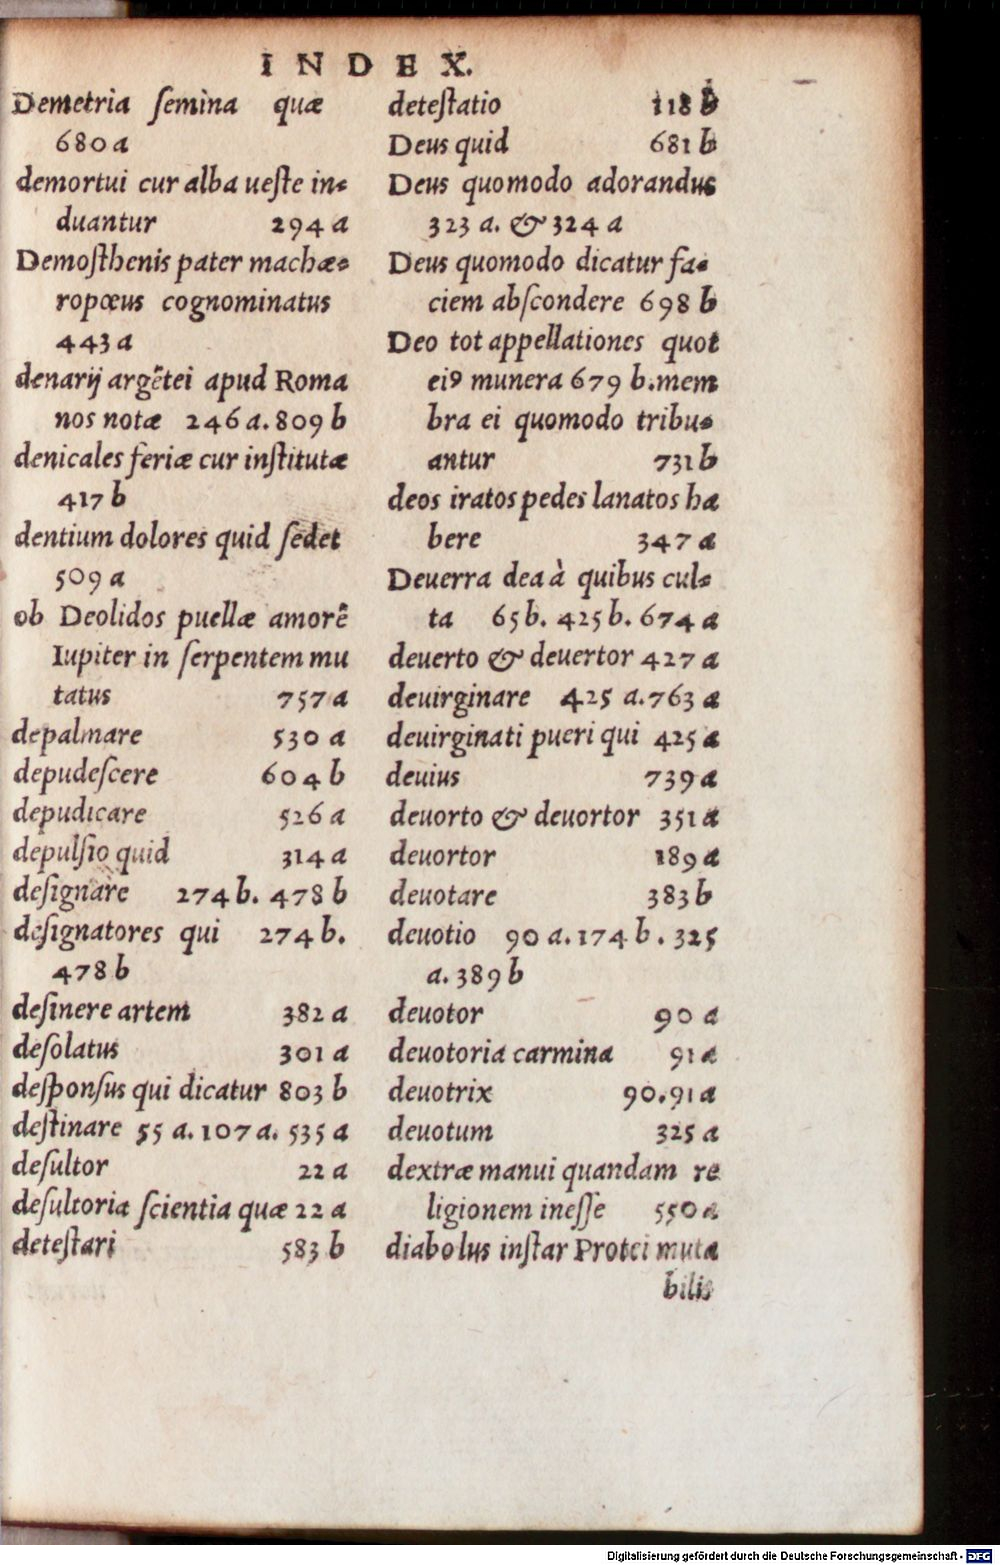 INDEX.
Demetria ſemina quæ
680 a
demortui cur alba ueſte in-
duantur 294 a
Demoſthenis pater machæ-
ropœus cognominatus
443 a
denarij argẽtei apud Roma
nos notæ 246 a. 809 b
denicales feriæ cur inſtitutæ
417 b
dentium dolores quid ſedet
509 a
ob Deolidos puellæ amorẽ
Iupiter in ſerpentem mu
tatus 757 a
depalmare 530 a
depudeſcere 604 b
depudicare 526 a
depulſio quid 314 a
deſignare 274 b. 478 b
deſignatores qui 274 b.
478 b
deſinere artem 382 a
deſolatus 301 a
deſponſus qui dicatur 803 b
deſtinare 55 a. 107 a. 535 a
deſultor 22 a
deſultoria ſcientia quæ 22 a
deteſtari 583 b
deteſtatio 118 b
Deus quid 681 b
Deus quomodo adorandus
323 a. & 324 a
Deus quomodo dicatur fa-
ciem abſcondere 698 b
Deo tot appellationes quot
eiꝰ munera 679 b. mem
bra ei quomodo tribu-
antur 731 b
deos iratos pedes lanatos ha
bere 347 a
Deuerra dea à quibus cul-
ta 65 b. 425 b. 674 a
deuerto & deuertor 427 a
deuirginare 425 a. 763 a
deuirginati pueri qui 425 a
deuius 739 a
deuorto & deuortor 351 a
deuortor 189 a
deuotare 383 b
deuotio 90 a. 174 b. 325
a. 389 b
deuotor 90 a
deuotoria carmina 91 a
deuotrix 90. 91 a
deuotum 325 a
dextræ manui quandam re
ligionem ineſſe 550 a
diabolus inſtar Protei muta
bilis
Digitalisierung gefördert durch die Deutsche Forschungsgemeinschaft - DFG